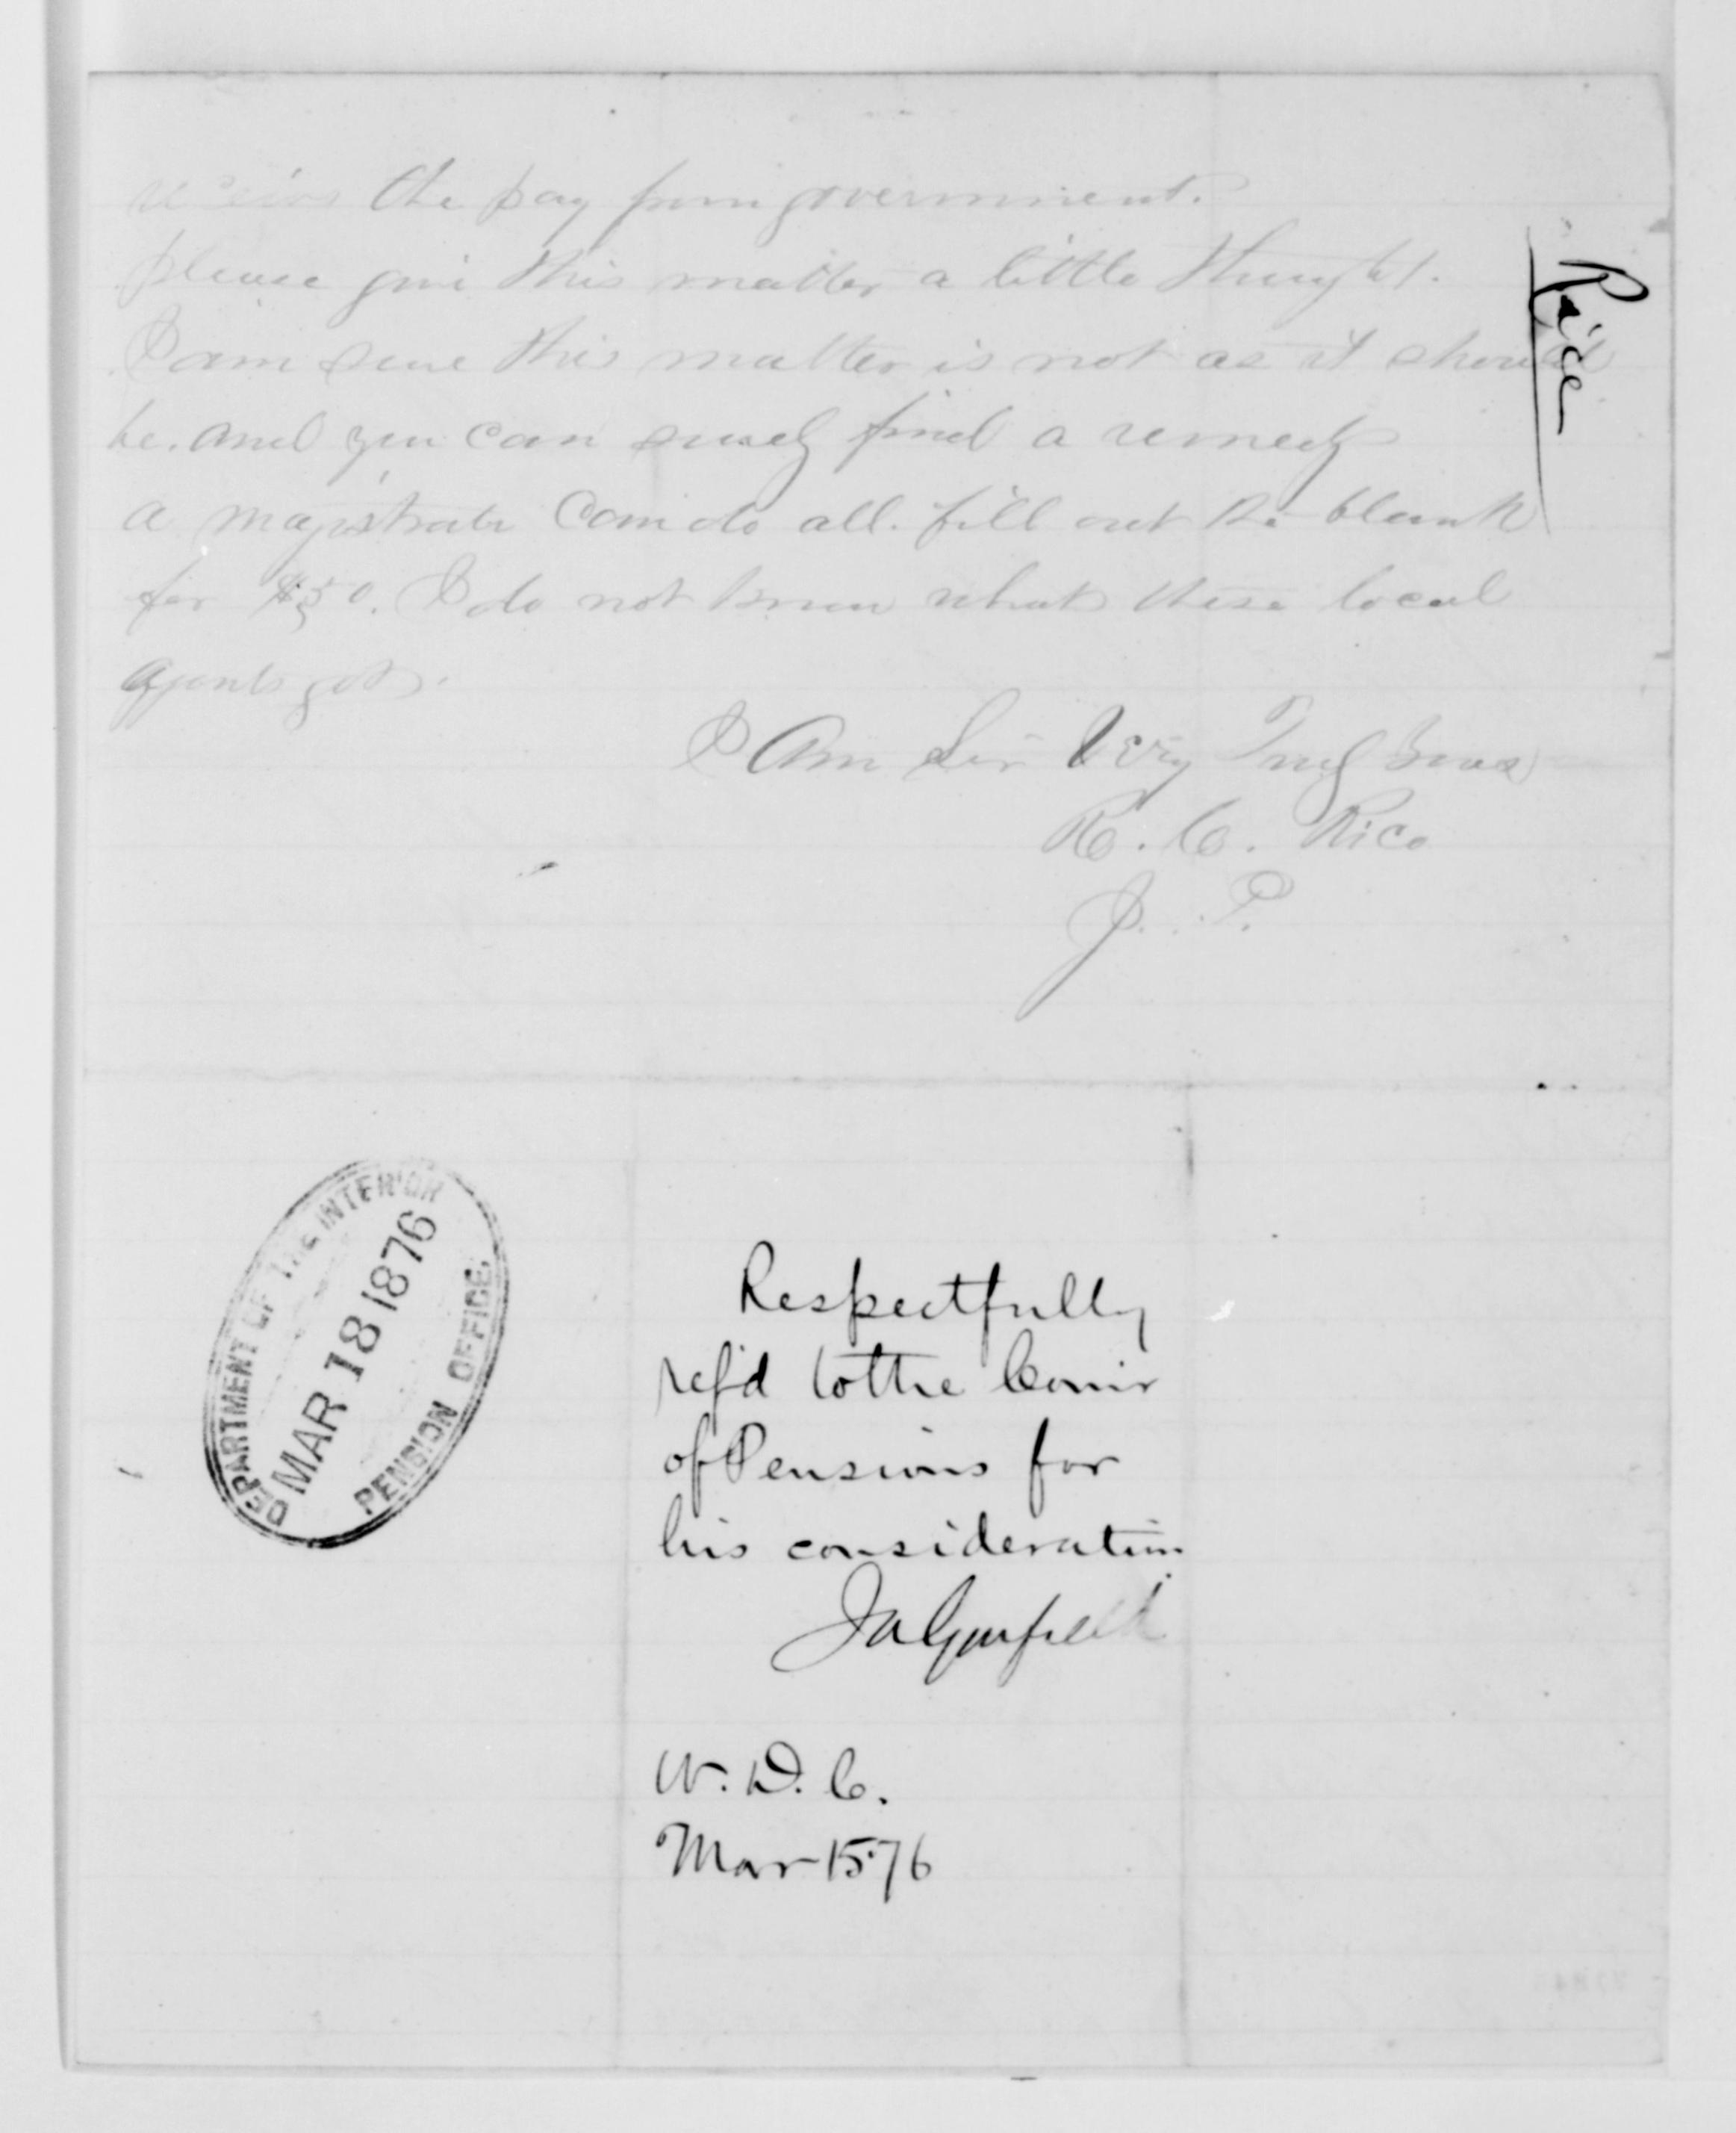 receive the pay from government.
please give this matter a little thought.
I am sure this matter is not as it should
be. and you can surely find a remedy
a majistrate can do all. fill out the blank
for $50. I do not know what these local
agents get.
I Am Sir Very Truly Yours
R. C. Rice
J. P.
Rice
DEPARTMENT OF THE INTERIOR
MAR 18 1876
PENSION OFFICE.
Respectfully
ref'd to the Comr
of Pensions for
his consideration.
J A Garfield
W. D. C.
Mar 15 76